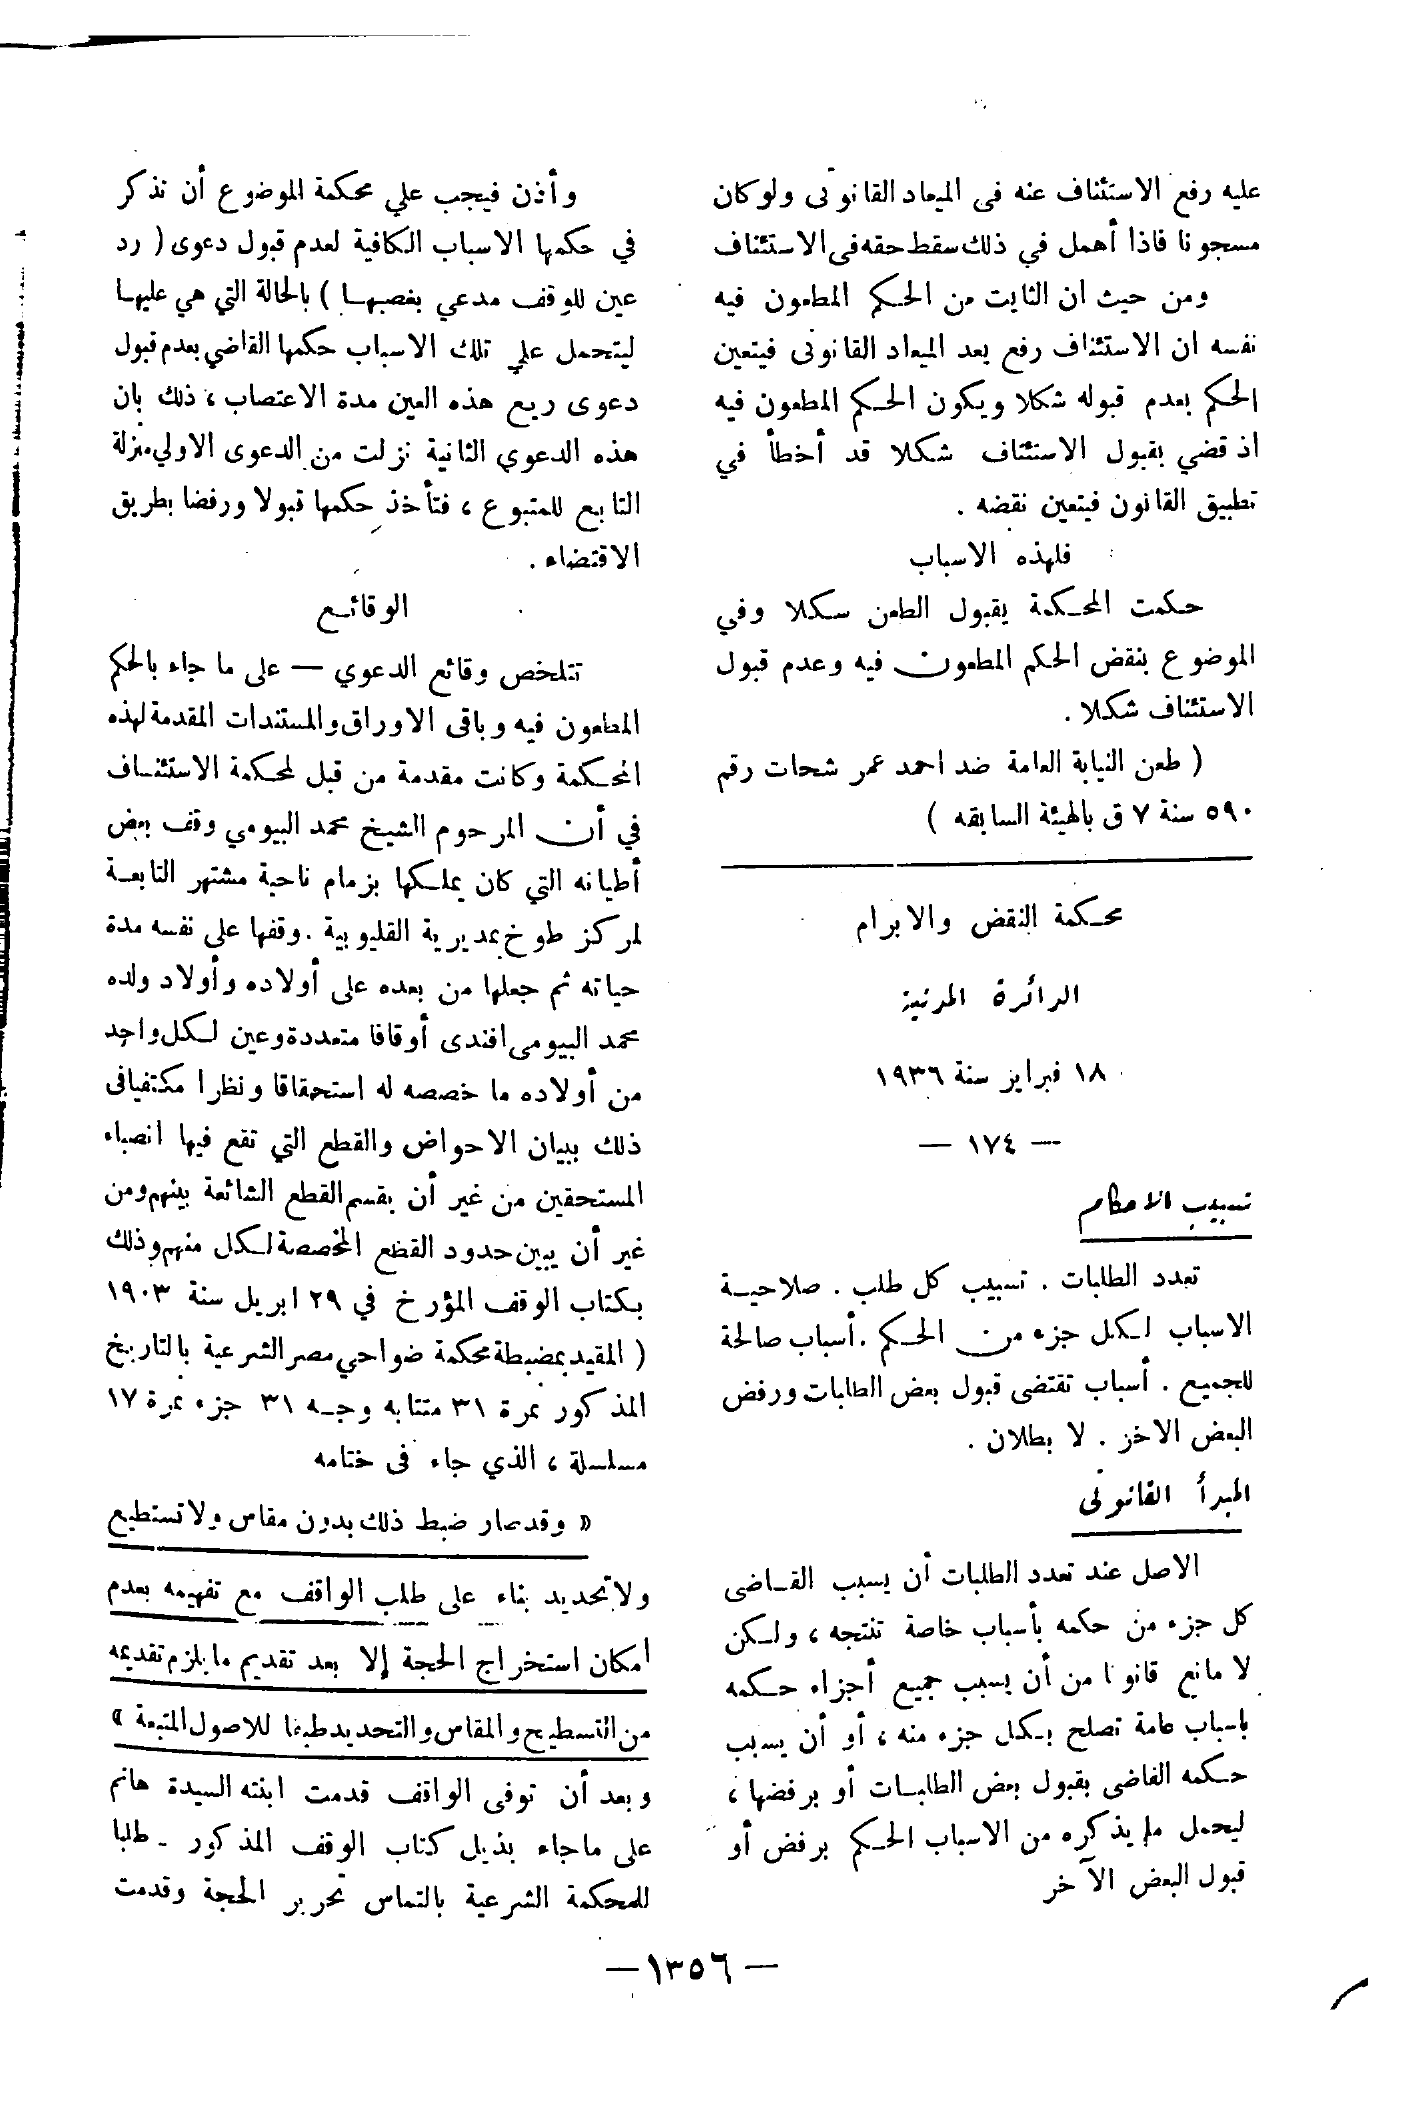 عليه رفع الاستئناف عنه فى الميعاد القانونى ولو كان
مسجونا فاذا أهمل في ذلك سقط حقه فى الاستئناف
ومن حيث ان الثابت من الحكم المطعون فيه
نفسه ان الاستئناف رفع بعد الميعاد القانونى فيتعين
الحكم بعدم قبوله شكلا ويكون الحكم المطعون فيه
اذ قضي بقبول الاستئناف شكلا قد أخطأ في
تطبيق القانون فيتعين نقضه .
فلهذه الاسباب
حكمت المحكمة بقبول الطعن سكلا وفي
الموضوع بنقض الحكم المطعون فيه وعدم قبول
الاستئناف شكلا .
( طعن النيابة العامة ضد احمد عمر شحات رقم
٥٩٠ سنة ٧ ق بالهيئة السابقه )
محكمة النقض والابرام
الدائرة المدنية
١٨ فبراير سنة ١٩٣٦
— ١٧٤ —
تسبيب الاحكام
تعدد الطلبات . تسبيب كل طلب . صلاحية
الاسباب لكل جزء من الحكم . أسباب صالحة
للجميع . أسباب تقتضى قبول بعض الطلبات ورفض
البعض الاخر . لا بطلان .
المبدأ القانونى
الاصل عند تعدد الطلبات أن يسبب القاضى
كل جزء من حكمه بأسباب خاصة تنتجه ، ولكن
لا مانع قانونا من أن يسبب جميع أجزاء حكمه
باسباب عامة تصلح بكل جزء منه ، أو أن يسبب
حكمه القاضى بقبول بعض الطلبات أو برفضها ،
ليحمل ما يذكره من الاسباب الحكم برفض أو
قبول البعض الآخر
وأذن فيجب علي محكمة الموضوع أن تذكر
في حكمها الاسباب الكافية لعدم قبول دعوى ( رد
عين للوقف مدعي بغصبها ) بالحالة التي هي عليها
ليتحمل علي تلك الاسباب حكمها القاضي بعدم قبول
دعوى ريع هذه العين مدة الاغتصاب ، ذلك بان
هذه الدعوي الثانية نزلت من الدعوى الاولي منزلة
التابع للمتبوع ، فتأخذ حكمها قبولا ورفضا بطريق
الاقتضاء .
الوقائع
تتلخص وقائع الدعوي — على ما جاء بالحكم
المطعون فيه وباقى الاوراق والمستندات المقدمة لهذه
المحكمة وكانت مقدمة من قبل لمحكمة الاستئناف
في أن المرحوم الشيخ محمد البيومي وقف بعض
أطيانه التي كان يملكها بزمام ناحية مشتهر التابعة
لمركز طوخ بمديرية القليوبية . وقفها على نفسه مدة
حياته ثم جعلها من بعده على أولاده وأولاد ولده
محمد البيومى افندى أوقافا متعددة وعين لكل واحد
من أولاده ما خصصه له استحقاقا ونظرا مكتفيا فى
ذلك ببيان الاحواض والقطع التي تقع فيها انصباء
المستحقين من غير أن يقسم القطع الشائعة بينهم ومن
غير أن يبين حدود القطع المخصصة لكل منهم وذلك
بكتاب الوقف المؤرخ في ٢٩ ابريل سنة ١٩٠٣
( المقيد بمضبطة محكمة ضواحي مصر الشرعية بالتاريخ
المذكور نمرة ٣١ متتابه وجه ٣١ جزء نمرة ١٧
مسلسلة ، الذي جاء فى ختامه
« وقد صار ضبط ذلك بدون مقاس ولا تسطيع
ولا تحديد بناء على طلب الواقف مع تفهيمه بعدم
امكان استخراج الحجة إلا بعد تقديم ما يلزم تقديمه
من التسطيح والمقاس والتحديد طبقا للاصول المتبعة »
وبعد أن توفى الواقف قدمت ابنته السيدة هانم
على ماجاء بذيل كتاب الوقف المذكور - طلبا
للمحكمة الشرعية بالتماس تحرير الحجة وقدمت
— ١٣٥٦ —